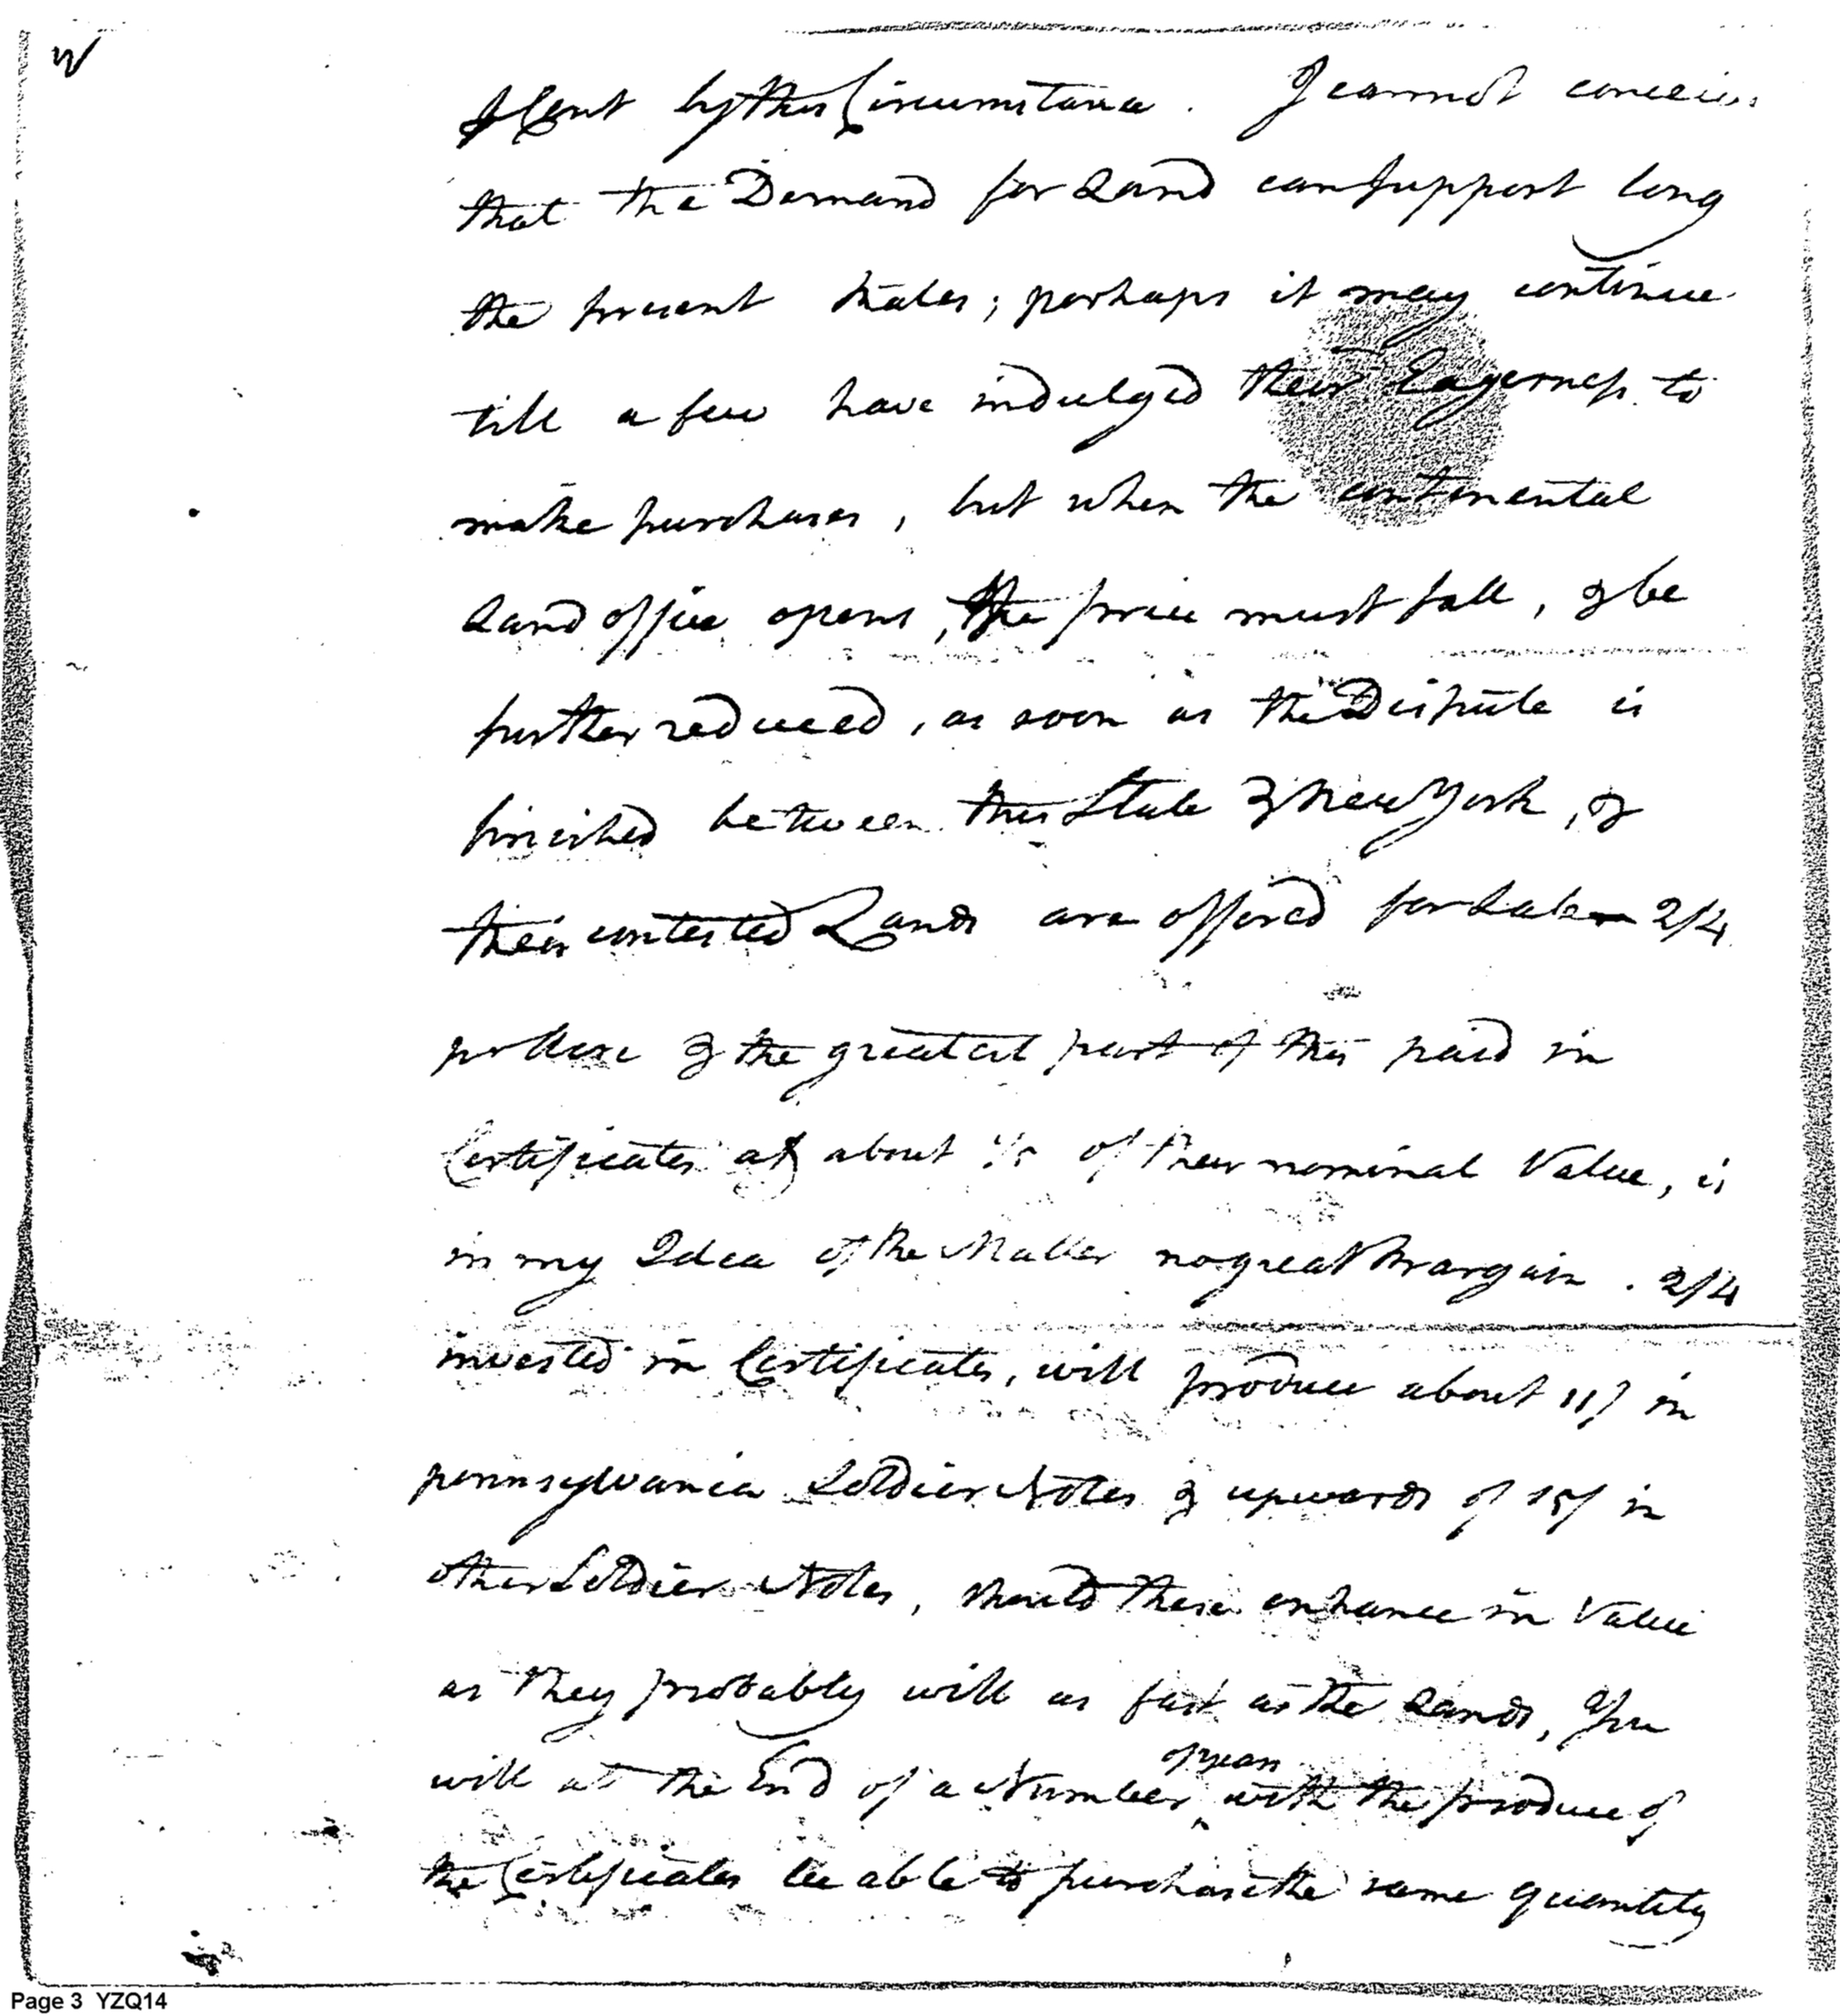 W
Scent by this Circumstance. I cannot conceive
that the Demand for Land can support long
the present Rates; perhaps it may continue
till a few have indulged their Eagerness to
make purchases, but when the continental
Land office opens, the price must fall, & be
further reduced, as soon as the Dispute is
finished between this State & New York, &
their contested Lands are offered for Sale 2/4
per Acre & the greatest part of this paid in
Certificates at about of their nominal Value, is
in my Idea of the Matter no great Bargain. 2/4
invested in Certificates, will produce about 11/ in
pennsylvania Soldier Notes & upwards of 15/ in
other Soldier Notes, should these enhance in Value
as they probably will as fast as the Lands, You
will at the End of a Number of years with the produce of
the Certificates be able to purchase the same quantity
Page 3 YZQ14